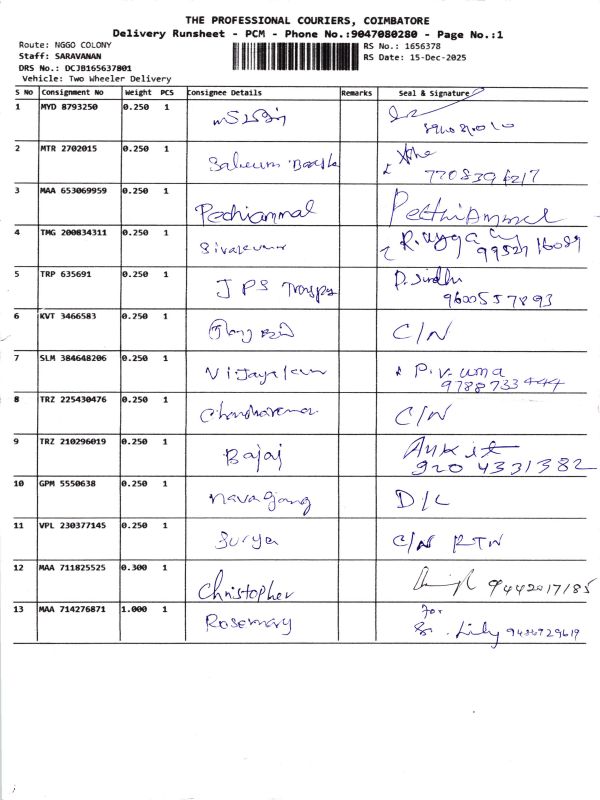 THE PROFESSIONAL COURIERS, COIMBATORE
Delivery Runsheet - PCM - Phone No.:9047080280 - Page No.:1
Route: NGGO COLONY
RS No.: 1656378
Staff: SARAVANAN
RS Date: 15-Dec-2025
DRS No.: DCJB165637801
Vehicle: Two Wheeler Delivery
S No Consignment No Weight PCS Consignee Details Remarks Seal & Signature
1 MYD 8793250 0.250 1
2 MTR 2702015 0.250 1
3 MAA 653069959 0.250 1 Pechiammal Pechiammal
4 TMG 200834311 0.250 1 99527 16089
5 TRP 635691 0.250 1 JPS D. Sindhu
9600557893
6 KVT 3466583 0.250 1 C/N
7 SLM 384648206 0.250 1 P.V. uma
9788733444
8 TRZ 225430476 0.250 1 C/N
9 TRZ 210296019 0.250 1 Bajaj Ankit
920 4331382
10 GPM 5550638 0.250 1 D/L
11 VPL 230377145 0.250 1 Surya C/N RTN
12 MAA 711825525 0.300 1 Christopher 9442017185
13 MAA 714276871 1.000 1 Rosemary For
Sr. Lily